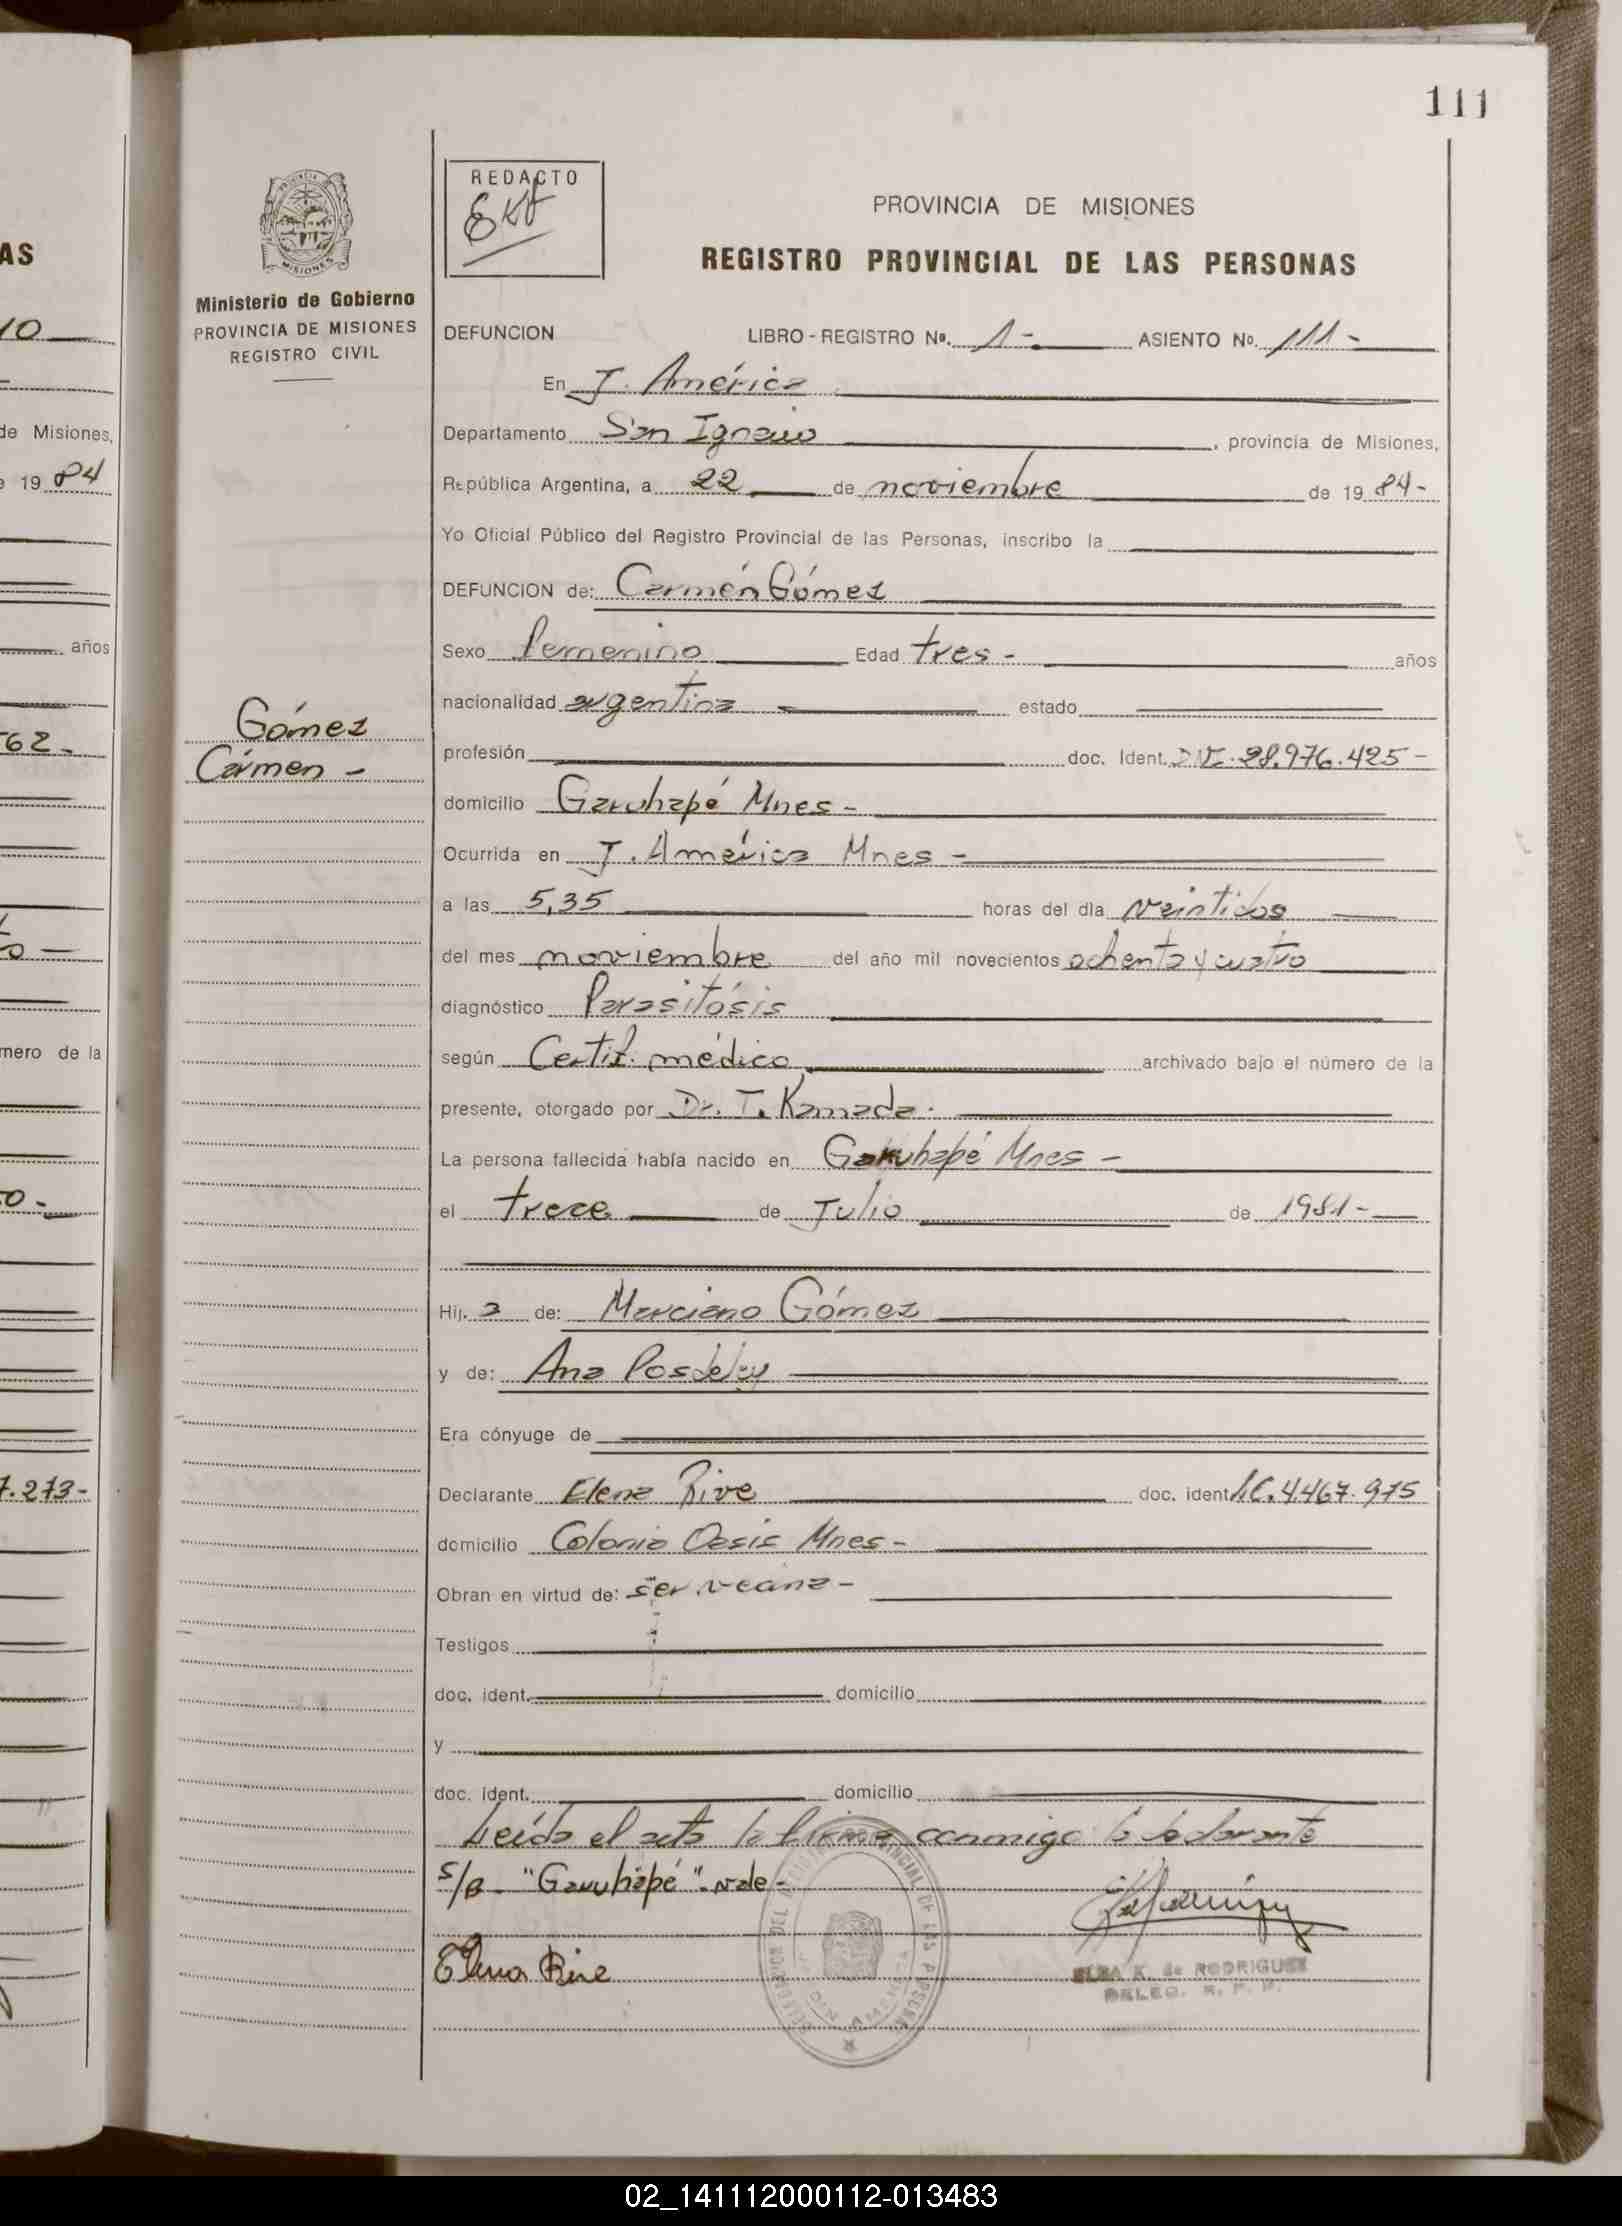 111
AS
10
de Misiones,
e 19 84
años
562-
mero de la
50-
7.273-
PROVINCIA
MISIONES
Ministerio de Gobierno
PROVINCIA DE MISIONES
REGISTRO CIVIL
Gómez
Cármen -
REDACTO
PROVINCIA DE MISIONES
REGISTRO PROVINCIAL DE LAS PERSONAS
DEFUNCION LIBRO - REGISTRO Nº. 1 - ASIENTO Nº. 111 -
En J. América
Departamento San Ignacio , provincia de Misiones,
República Argentina, a 22 de noviembre de 19 84-
Yo Oficial Público del Registro Provincial de las Personas, inscribo la
DEFUNCION de: Carmén Gómez
Sexo femenino Edad tres - años
nacionalidad argentina estado
profesión doc. Ident. DNI. 28.976.425 -
domicilio Garuhapé Mnes -
Ocurrida en J. América Mnes -
a las 5,35 horas del día veintidos
del mes noviembre del año mil novecientos ochenta y cuatro
diagnóstico Parasitósis
según Certif. médico archivado bajo el número de la
presente, otorgado por Dr. T. Kamada.
La persona fallecida había nacido en Garuhapé Mnes -
el trece de Julio de 1981 -
Hij. a de: Marciano Gómez
y de: Ana Posdeley
Era cónyuge de
Declarante Elena Rive doc. ident L.C. 4.467.975
domicilio Colonia Oasis Mnes -
Obran en virtud de: ser vecina -
Testigos
doc. ident. domicilio
y
doc. ident. domicilio
Leída el acta la firma conmigo la declarante
S/B - "Garuhapé" - vale -
Elena Rive
ELSA K. de RODRIGUEZ
DELEG. R. P. P.
02_141112000112-013483